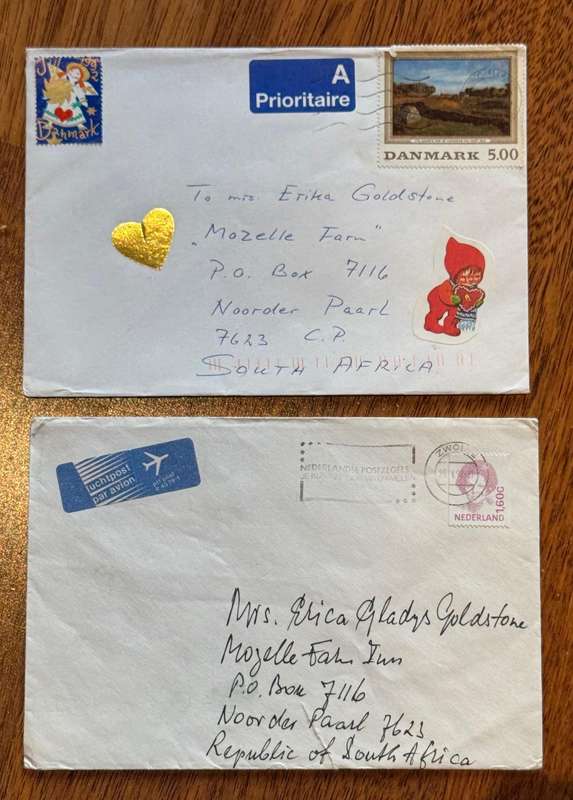 Jul 1993
Danmark
A
Prioritaire
DANMARK 5.00
To mrs. Erika Goldstone
„Mozelle Farm"
P.O. Box 7116
Noorder Paarl
7623 C.P.
SOUTH AFRICA
luchtpost
par avion
NEDERLANDSE POSTZEGELS
ZWOLLE
1,60G
NEDERLAND
Mrs. Erica Gladys Goldstone
Mozelle Farm Inn
P.O. Box 7116
Noorder Paarl 7623
Republic of South Africa